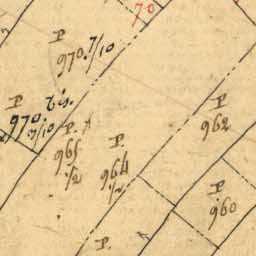 70
P
970.7/10
P
970. bis.
7/10
P.
965
1/2
P.
964
1/2
P
962
P
960
P.